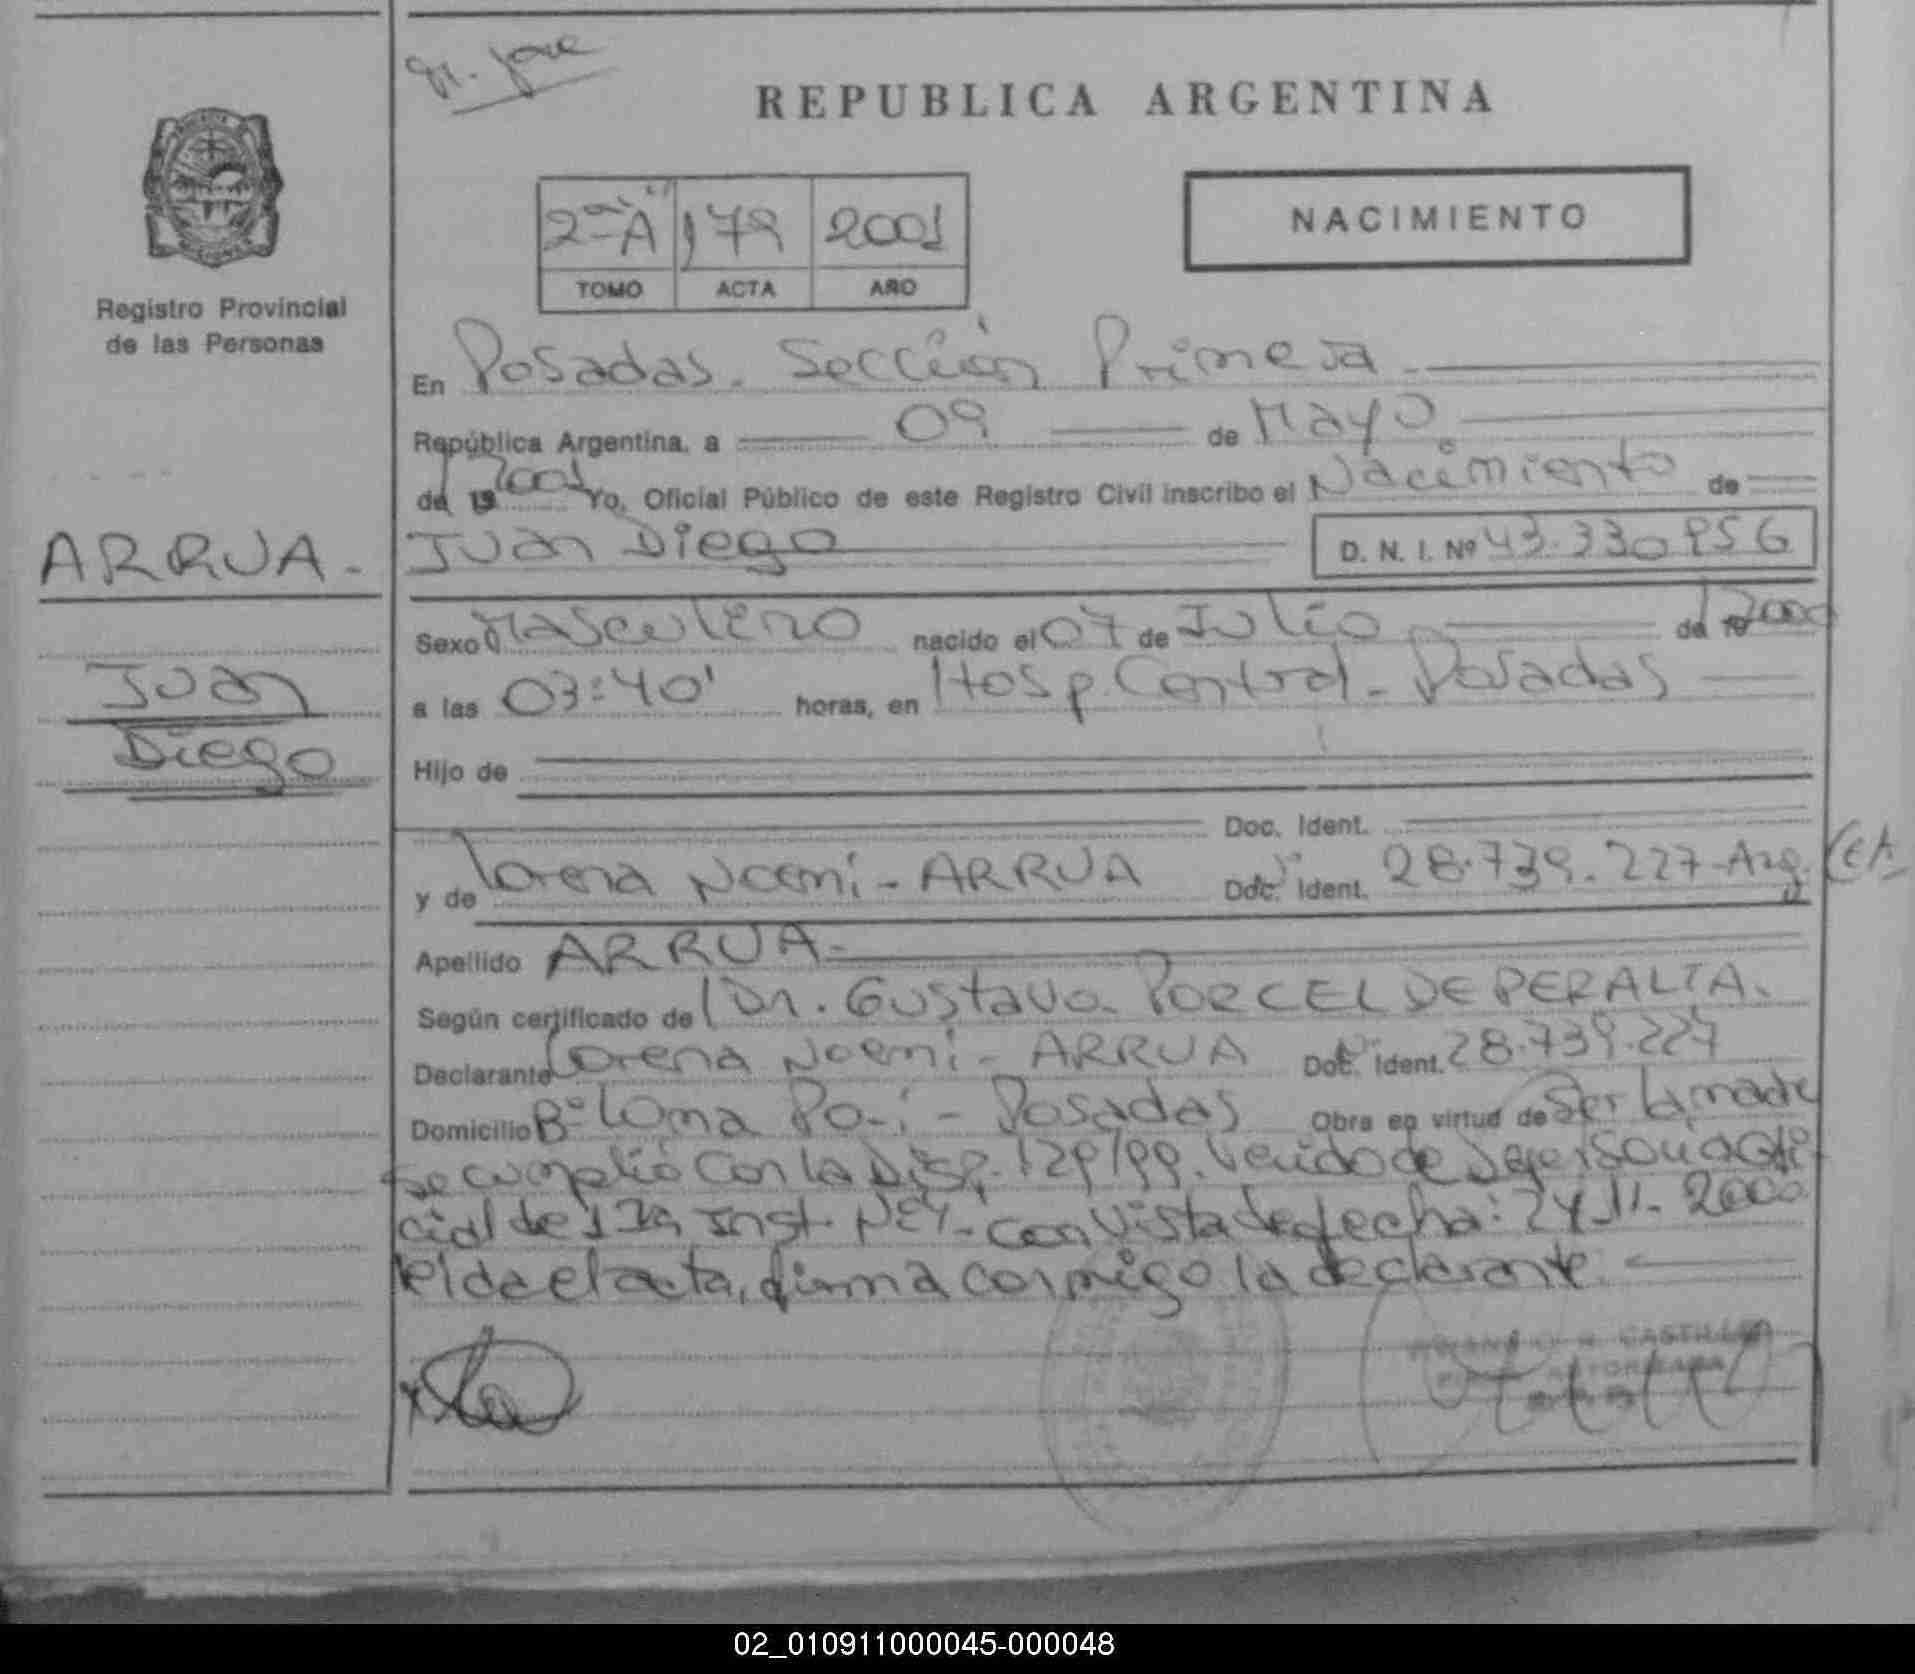 REPUBLICA ARGENTINA
Registro Provincial
de las Personas
2ª "A" 179 2001
TOMO ACTA AÑO
NACIMIENTO
En Posadas. Sección Primera
República Argentina, a 09 de Mayo
de 2001 Yo, Oficial Público de este Registro Civil inscribo el Nacimiento de
ARRUA.
Juan
Diego
Juan Diego D. N. I. Nº 43.330.956
Sexo Masculino nacido el 07 de Julio de 2000
a las 03:40' horas, en Hosp. Central - Posadas
Hijo de
Doc. Ident.
y de Lorena Noemi - ARRUA Doc. Ident. 28.739.227-Arg.
Apellido ARRUA-
Según certificado de Dr. Gustavo PORCEL DE PERALTA.
Declarante Lorena Noemi - ARRUA Doc. Ident. 28.739.227
Domicilio Bº Loma Po-í - Posadas Obra en virtud de Ser la madre
se cumplió con la Disp. 129/99. de
cial de 1ra Inst. Nº 4 - con Vista de fecha: 24.11.2000
leída el acta, firma conmigo la declarante.
CASTILLO
02_010911000045-000048